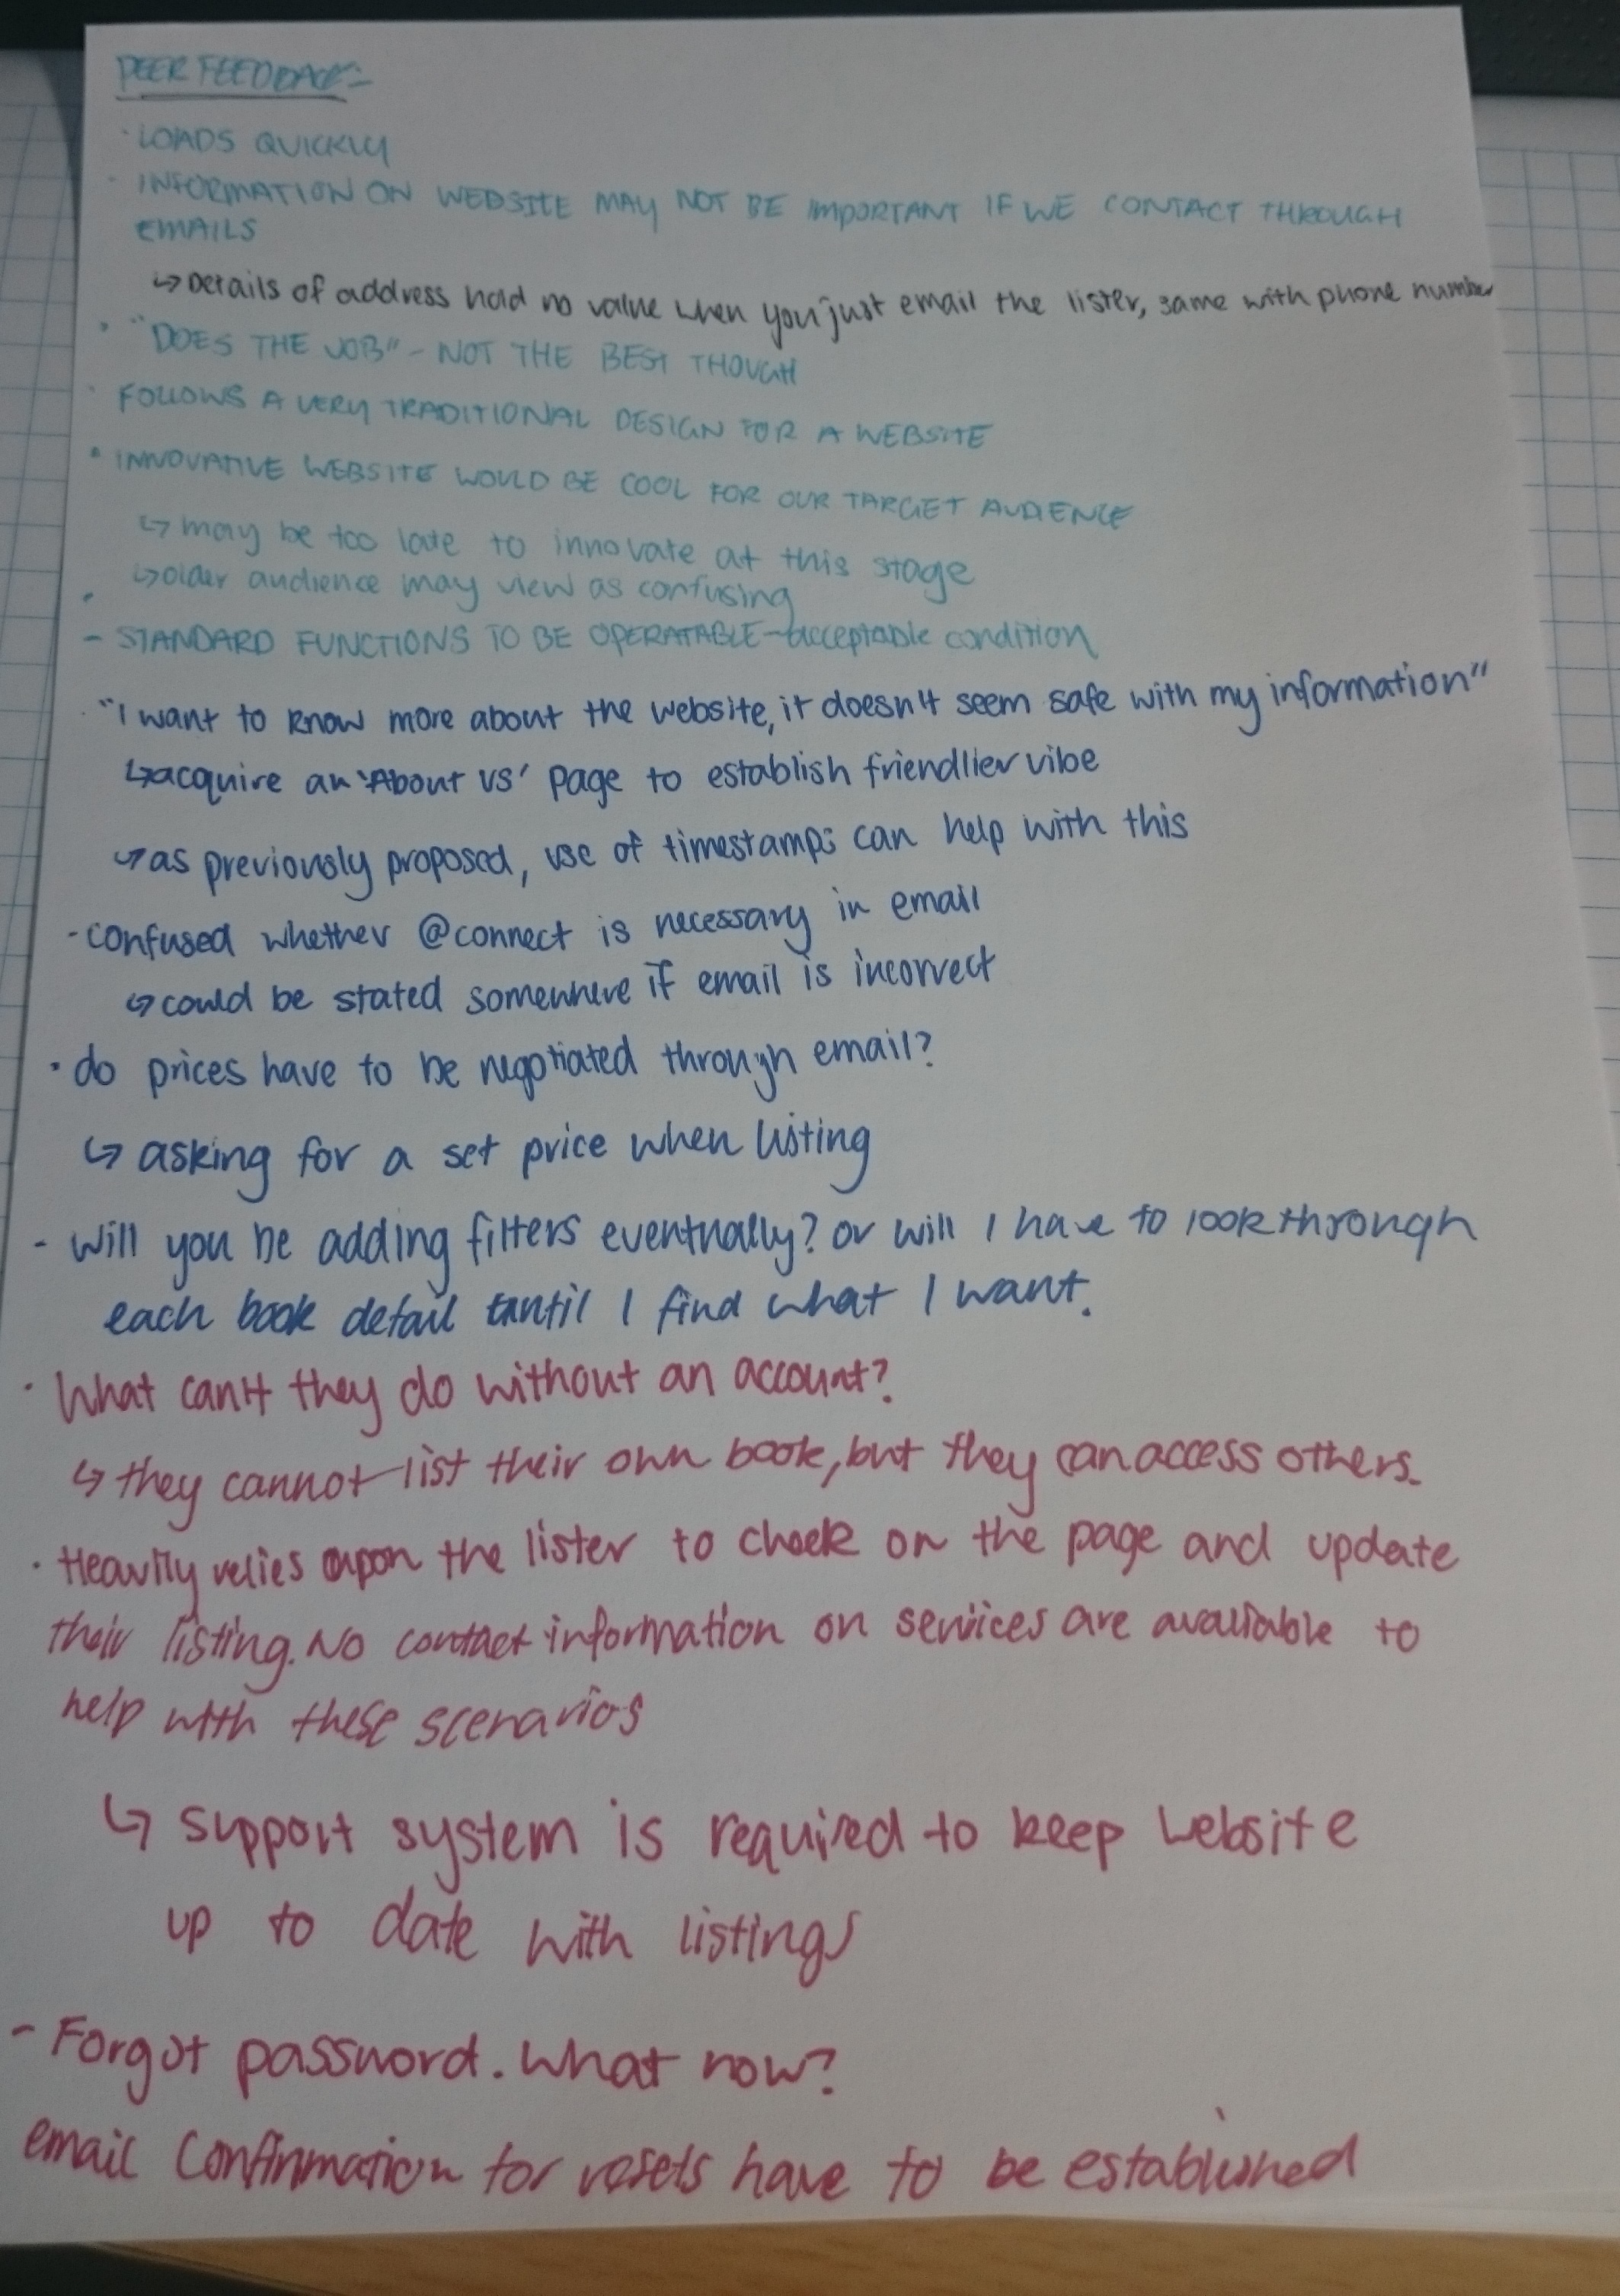 PEER FEEDBACK:
· LOADS QUICKLY
· INFORMATION ON WEBSITE MAY NOT BE IMPORTANT IF WE CONTACT THROUGH
EMAILS
↳ Details of address hold no value when you just email the lister, same with phone number
· "DOES THE JOB" - NOT THE BEST THOUGH
· FOLLOWS A VERY TRADITIONAL DESIGN FOR A WEBSITE
· INNOVATIVE WEBSITE WOULD BE COOL FOR OUR TARGET AUDIENCE
↳ may be too late to innovate at this stage
↳ older audience may view as confusing
- STANDARD FUNCTIONS TO BE OPERATABLE - acceptable condition
· "I want to know more about the website, it doesn't seem safe with my information"
↳ acquire an 'About Us' page to establish friendlier vibe
↳ as previously proposed, use of timestamps can help with this
- confused whether @connect is necessary in email
↳ could be stated somewhere if email is incorrect
· do prices have to be negotiated through email?
↳ asking for a set price when listing
- Will you be adding filters eventually? or will I have to look through
each book detail until I find what I want.
· What can't they do without an account?
↳ they cannot list their own book, but they can access others.
· Heavily relies upon the lister to check on the page and update
their listing. No contact information on services are available to
help with these scenarios
↳ support system is required to keep website
up to date with listings
- Forgot password. What now?
email confirmation for resets have to be established